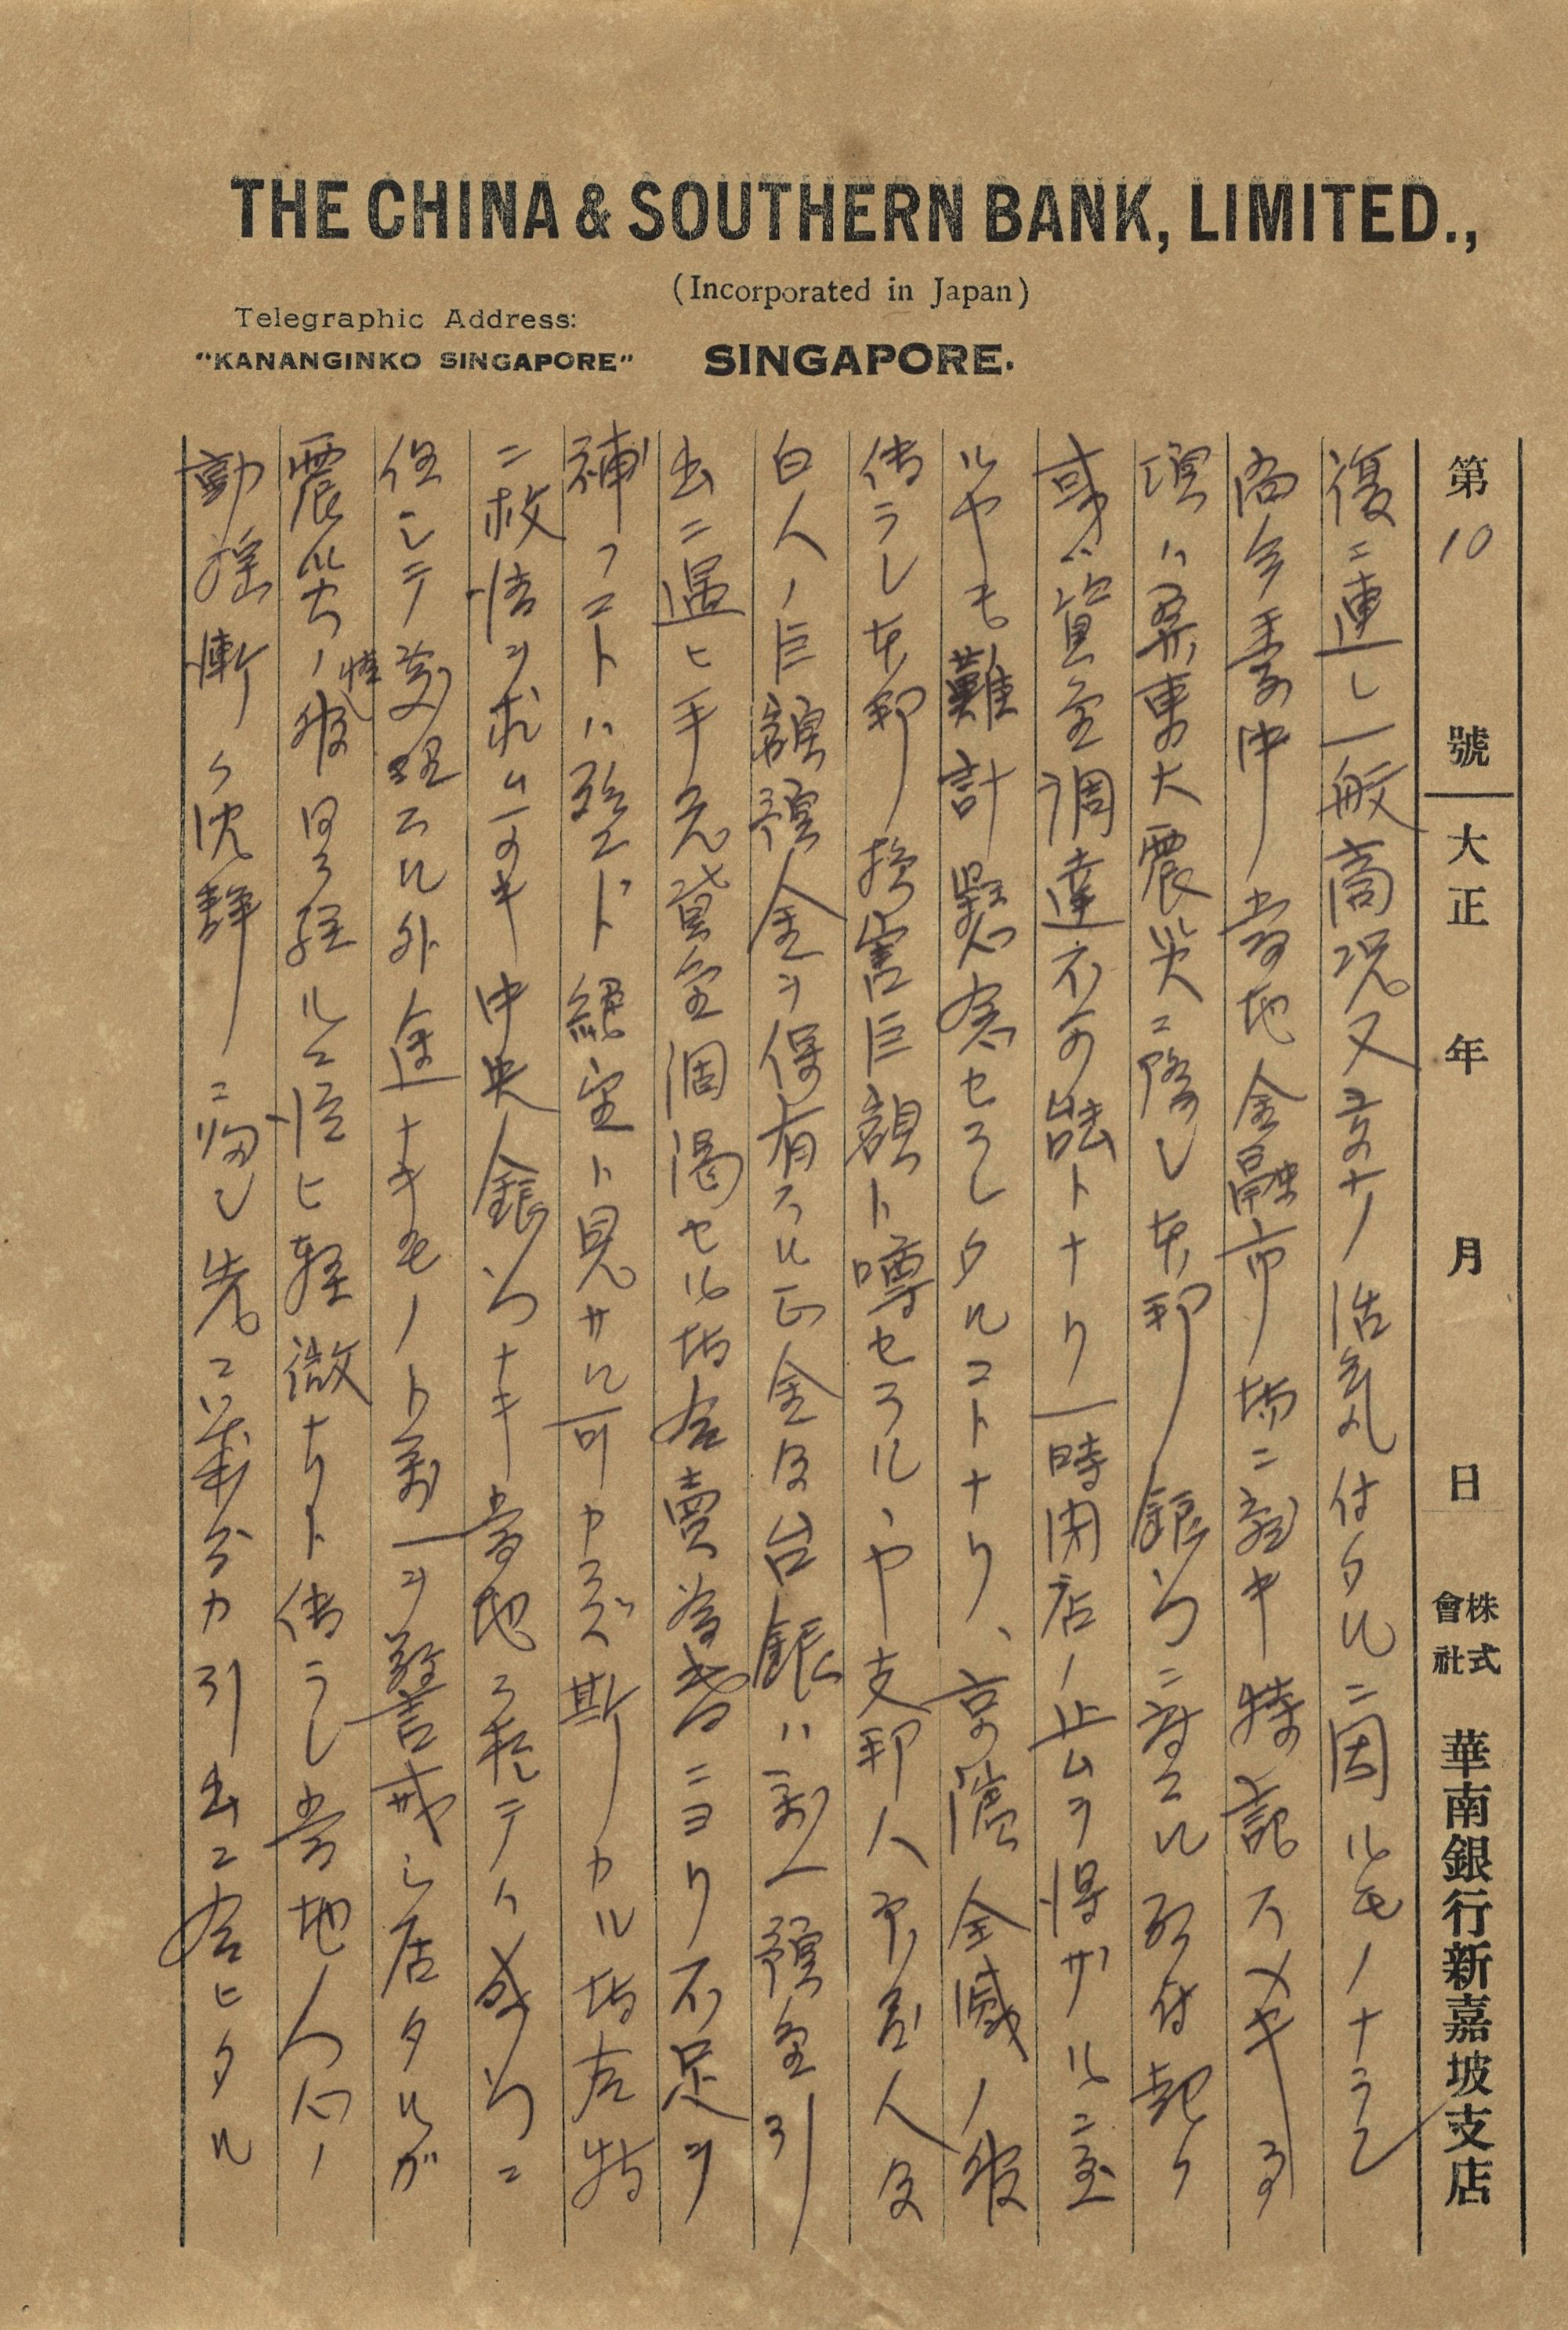 THE CHINA & SOUTHERN BANK, LIMITED.,
(Incorporated in Japan)
Telegraphic Address:
"KANANGINKO SINGAPORE"
SINGAPORE.
第10號 大正 年 月 日 株式會社 華南銀行新嘉坡支店
復ニ連レ一般商況又多少ノ活気付タルニ因ルモノナラン
尚今季中ノ当地金融市場ニ就キ特記スベキ事
項ハ関東大震災ニ際シ本邦銀行ニ対スル取付起リ
或ハ資金調達不可能トナリ一時閉店ノ止ムヲ得ザルニ至
ルヤモ難計懸念セラレタルコトナリ、京濱全滅ノ報
傳ラレ本邦ノ損害巨額ト噂セラルヽヤ支那人印度人及
白人ノ巨額預金ヲ保有スル正金及台銀ハ万一預金引
出ニ遇ヒ手元資金涸渇セル場合賣為替ニヨリ不足ヲ
補フコトハ殆ンド絶望ト見サル可カラズ斯カル場合特
ニ救済ヲ求ムベキ中央銀行ナキ当地ニ於テハ成行ニ
任シテ整理スル外途ナキモノト万一ヲ警戒シ居タルガ
震災ノ情報日ヲ経ルニ従ヒ軽微ナリト傳ラレ当地人心ノ
動揺漸ク沈静ニ帰シ先ニ幾分カ引出ニ会ヒタル